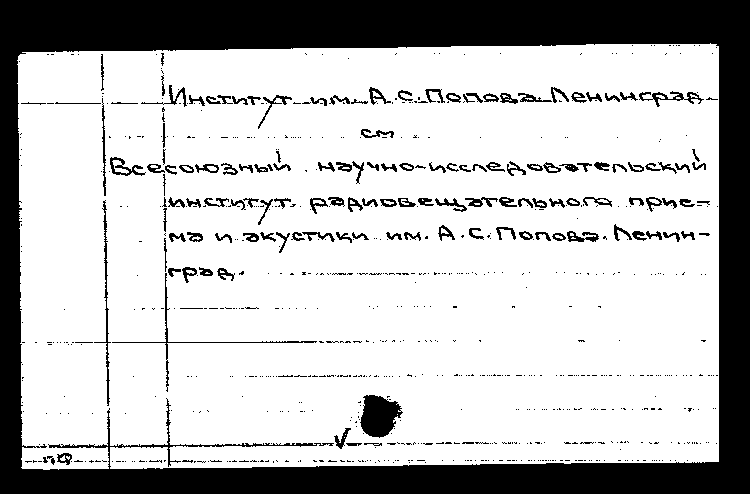 Институт им. А.С.Попова Ленинград
см
Всесоюзный научно-исследовательский
институт радиовещательного прие=
ма и акустики им. А.С.Попова. Ленин-
град.
пф